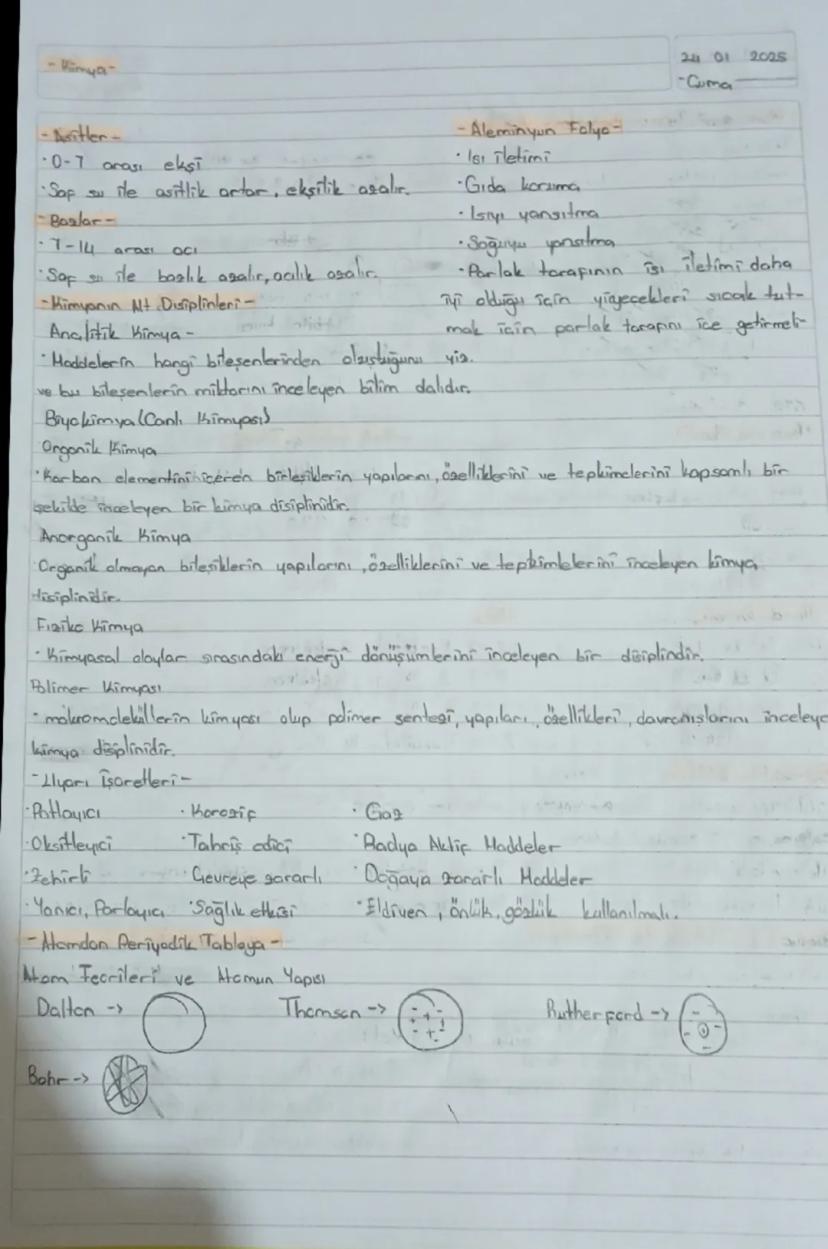 -Kimya-
24 01 2025
-Cuma
-Asitler-
·0-7 arası ekşi
·Saf su ile asitlik artar, ekşilik azalır.
-Bazlar-
·7-14 arası acı
·Saf su ile bazlık azalır, acılık azalır.
-Aleminyun Folyo-
·Isı iletimi
·Gıda koruma
·Isıyı yansıtma
·Soğuyu yansıtma
·Parlak tarafının ısı iletimi daha
iyi olduğu için yiyecekleri sıcak tut-
mak için parlak tarafını içe getirmeli-
yiz.
-Kimyanın Alt Disiplinleri-
Analitik Kimya-
·Maddelerin hangi bileşenlerinden oluştuğunu
ve bu bileşenlerin miktarını inceleyen bilim dalıdır.
Biyokimya (Canlı Kimyası)
Organik Kimya
·Karbon elementini içeren birleşiklerin yapılarını, özelliklerini ve tepkimelerini kapsamlı bir
şekilde inceleyen bir kimya disiplinidir.
Anorganik Kimya
Organik olmayan bileşiklerin yapılarını, özelliklerini ve tepkimelerini inceleyen kimya
disiplinidir.
Fiziko Kimya
·Kimyasal olaylar sırasındaki enerji dönüşümlerini inceleyen bir disiplindir.
Polimer Kimyası
·makromoleküllerin kimyası olup polimer sentezi, yapıları, özellikleri, davranışlarını inceleye
kimya disiplinidir.
-Uyarı İşaretleri-
·Patlayıcı ·Korozif ·Gaz
·Oksitleyici ·Tahriş edici ·Radya Aktif Maddeler
·Zehirli ·Çevreye zararlı ·Doğaya zararlı Maddeler
·Yanıcı, Parlayıcı ·Sağlık etkisi ·Eldiven, önlük, gözlük kullanılmalı.
-Atomdan Periyodik Tabloya-
Atom Teorileri ve Atomun Yapısı
Dalton -> Thomson -> Rutherford ->
Bohr ->